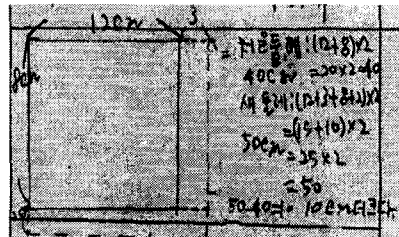 12cm 3
8cm
= 처음둘레:(12+8)×2
40cm =20×2=40
새 둘레:(12+3+8+2)×2
=(15+10)×2
50cm =25×2
=50
50-40=10 10cm더크다.